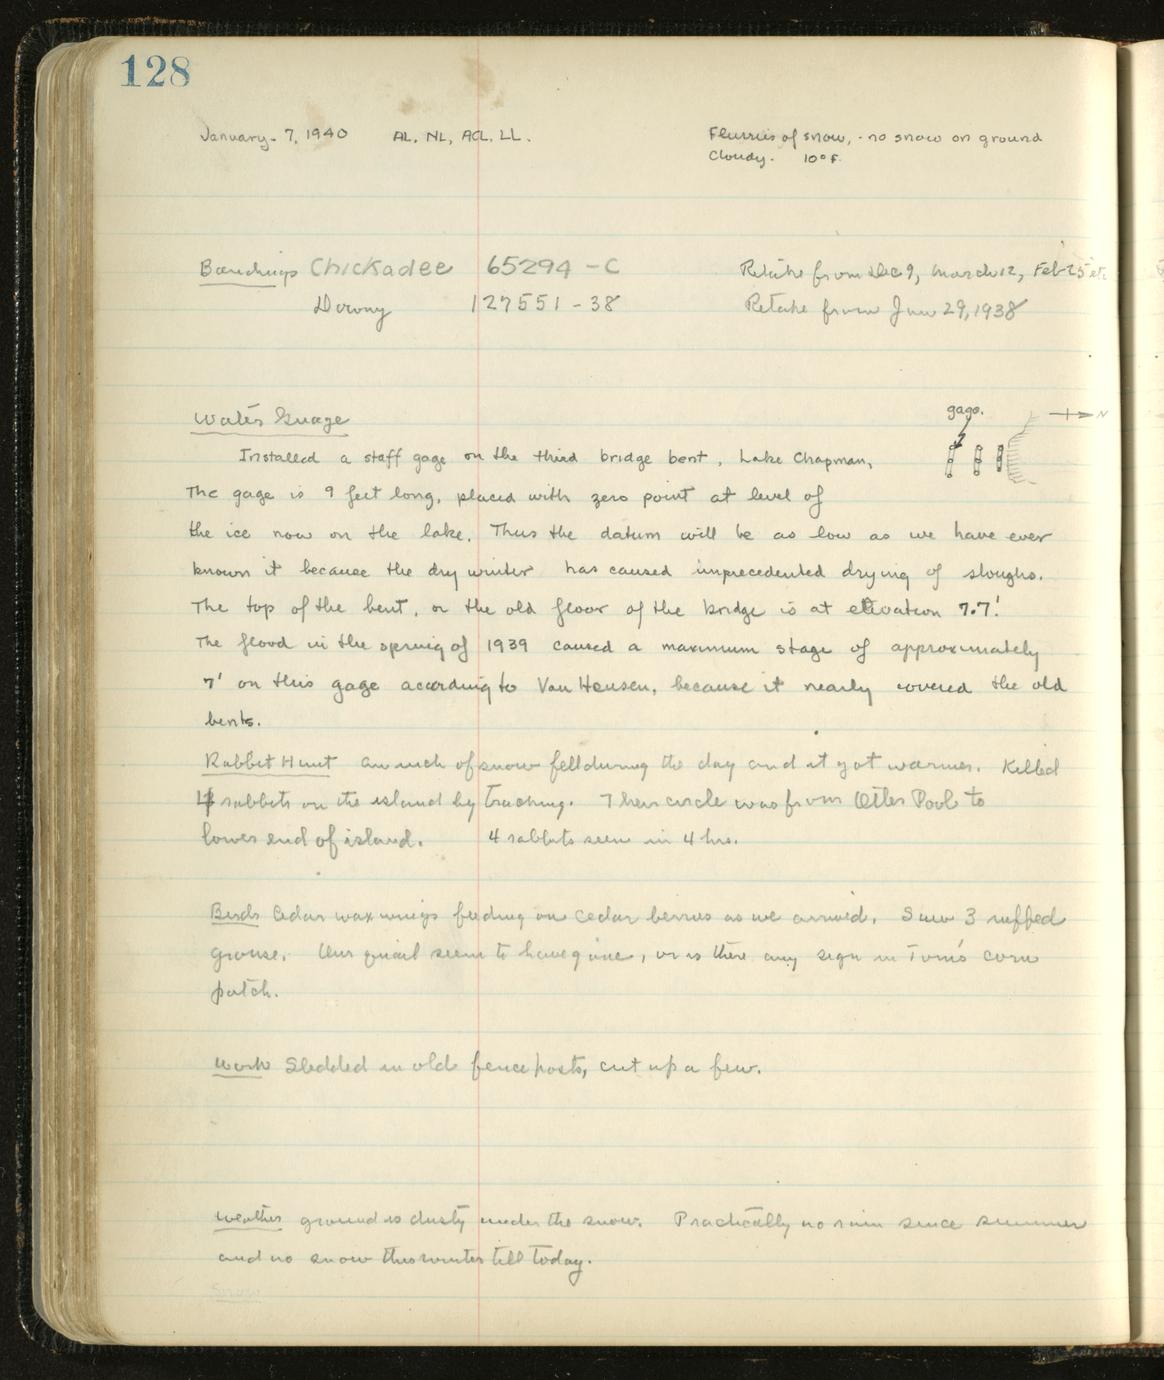 128
January. 7, 1940 AL, NL, ACL, LL.
Flurries of snow, - no snow on ground
Cloudy. 10° F.
Bandings Chickadee 65294 - C Retake from Dec 9, March 12, Feb 25 etc
Downy 127551 - 38 Retake from Jan 29, 1938
Water Guage
gage. N
Installed a staff gage on the third bridge bent, Lake Chapman,
The gage is 9 feet long, placed with zero point at level of
the ice now on the lake. Thus the datum will be as low as we have ever
known it because the dry winter has caused unprecedented drying of sloughs.
The top of the bent, or the old floor of the bridge is at elevation 7.7'.
The flood in the spring of 1939 caused a maximum stage of approximately
7' on this gage according to Van Hausen, because it nearly covered the old
bents.
Rabbit Hunt An inch of snow fell during the day and it got warmer. Killed
4 rabbits on the island by tracking. Their circle was from Otter Pool to
lower end of island. 4 rabbits seen in 4 hrs.
Birds Cedar waxwings feeding on cedar berries as we arrived. Saw 3 ruffed
grouse. Our quail seem to have gone, or is there any sign in Tom's corn
patch.
Work Sledded in old fence posts, cut up a few.
Weather ground is dusty under the snow. Practically no rain since summer
and no snow this winter till today.